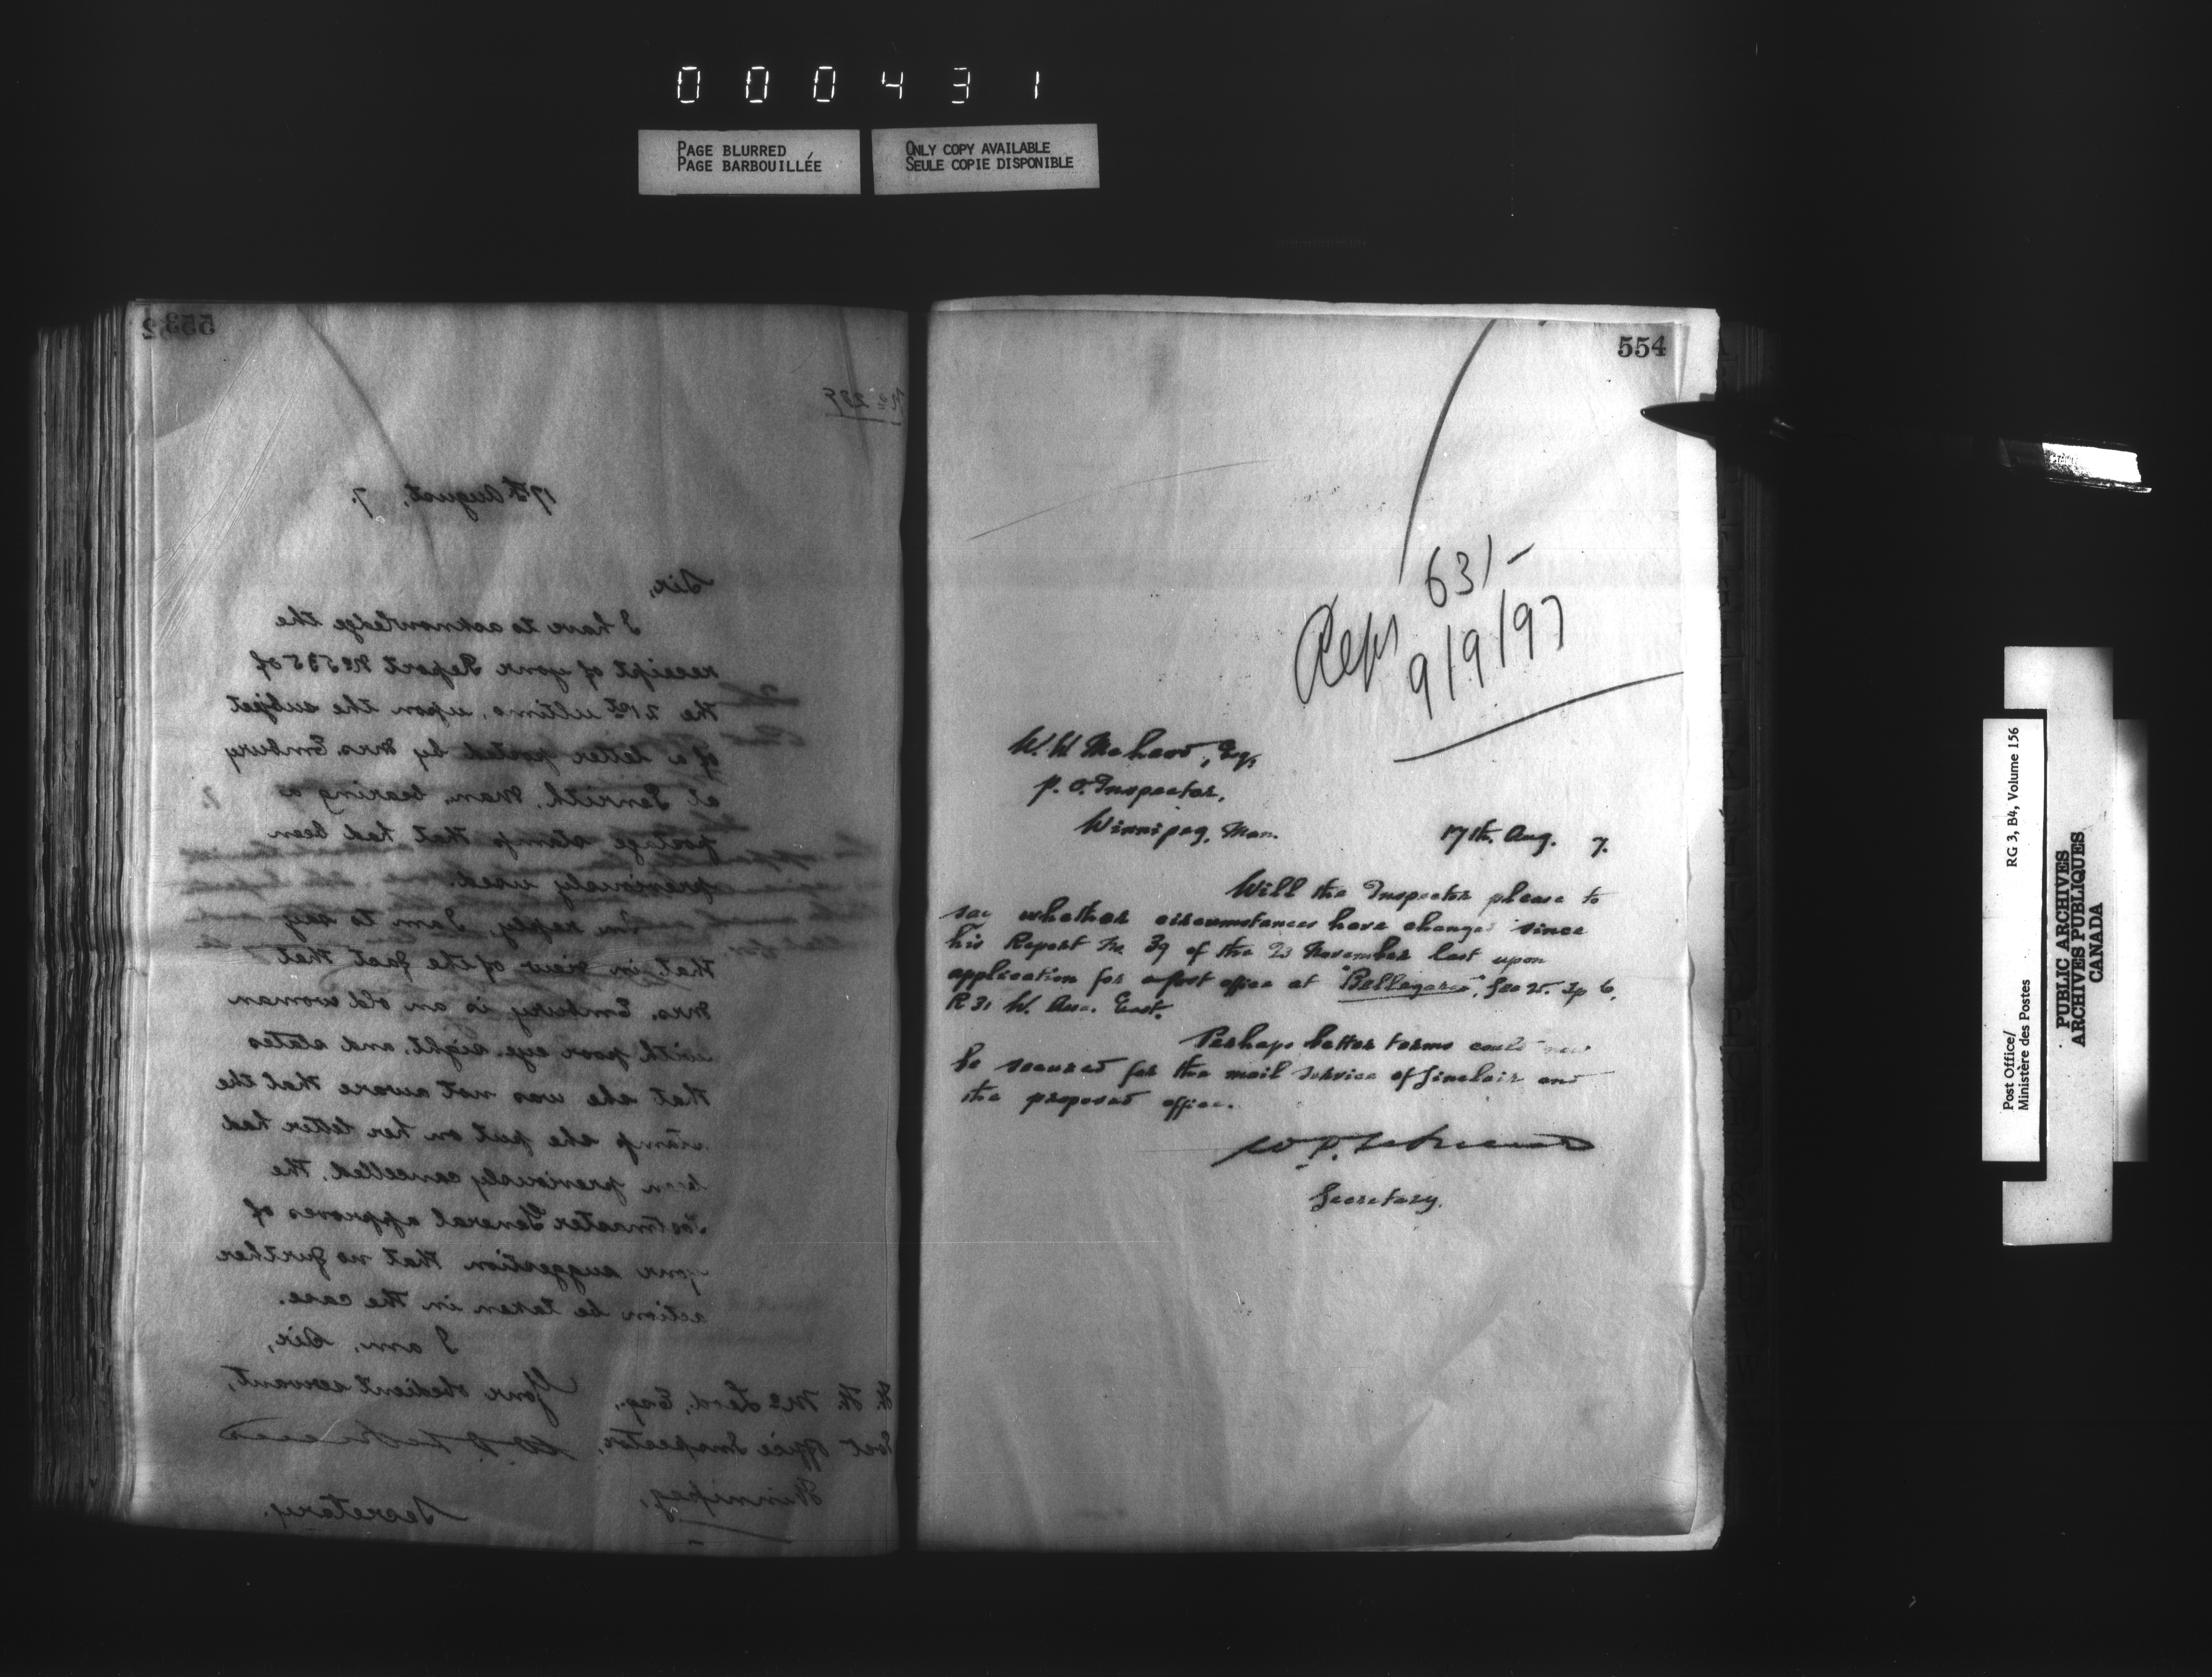 000431
PAGE BLURRED
PAGE BARBOUILLÉE
ONLY COPY AVAILABLE
SEULE COPIE DISPONIBLE
553
No 239
17th August, 7.
Sir,
I have to acknowledge the
receipt of your Report No 535 of
the 21st ultimo, upon the subject
of a letter posted by Mrs. Embury
at Penrith, Man. bearing a
postage stamp that had been
previously used.
In reply, I am to say
that in view of the fact that
Mrs. Embury is an old woman
with poor eye-sight, and states
that she was not aware that the
stamp she put on her letter had
been previously cancelled, the
Postmaster General approves of
your suggestion that no further
action be taken in the case.
I am, Sir,
Your obedient servant,
W. McLeod, Esq.,
Post Office Inspector,
Winnipeg,
Secretary.
554
63/-
9/9/97
W. W. McLeod, Esq,
P. O. Inspector,
Winnipeg, Man.
17th. Aug. 7.
Will the Inspector please to
say whether circumstances have changed since
his Report No 39 of the 23 November last upon
application for a post office at "Bellegarde", Sec 25. Tp 6,
R 31 W. East.
Perhaps better terms could now
be secured for the mail service of Sinclair and
the proposed office.
Secretary.
Post Office/
Ministère des Postes
RG 3, B4, Volume 156
PUBLIC ARCHIVES
ARCHIVES PUBLIQUES
CANADA